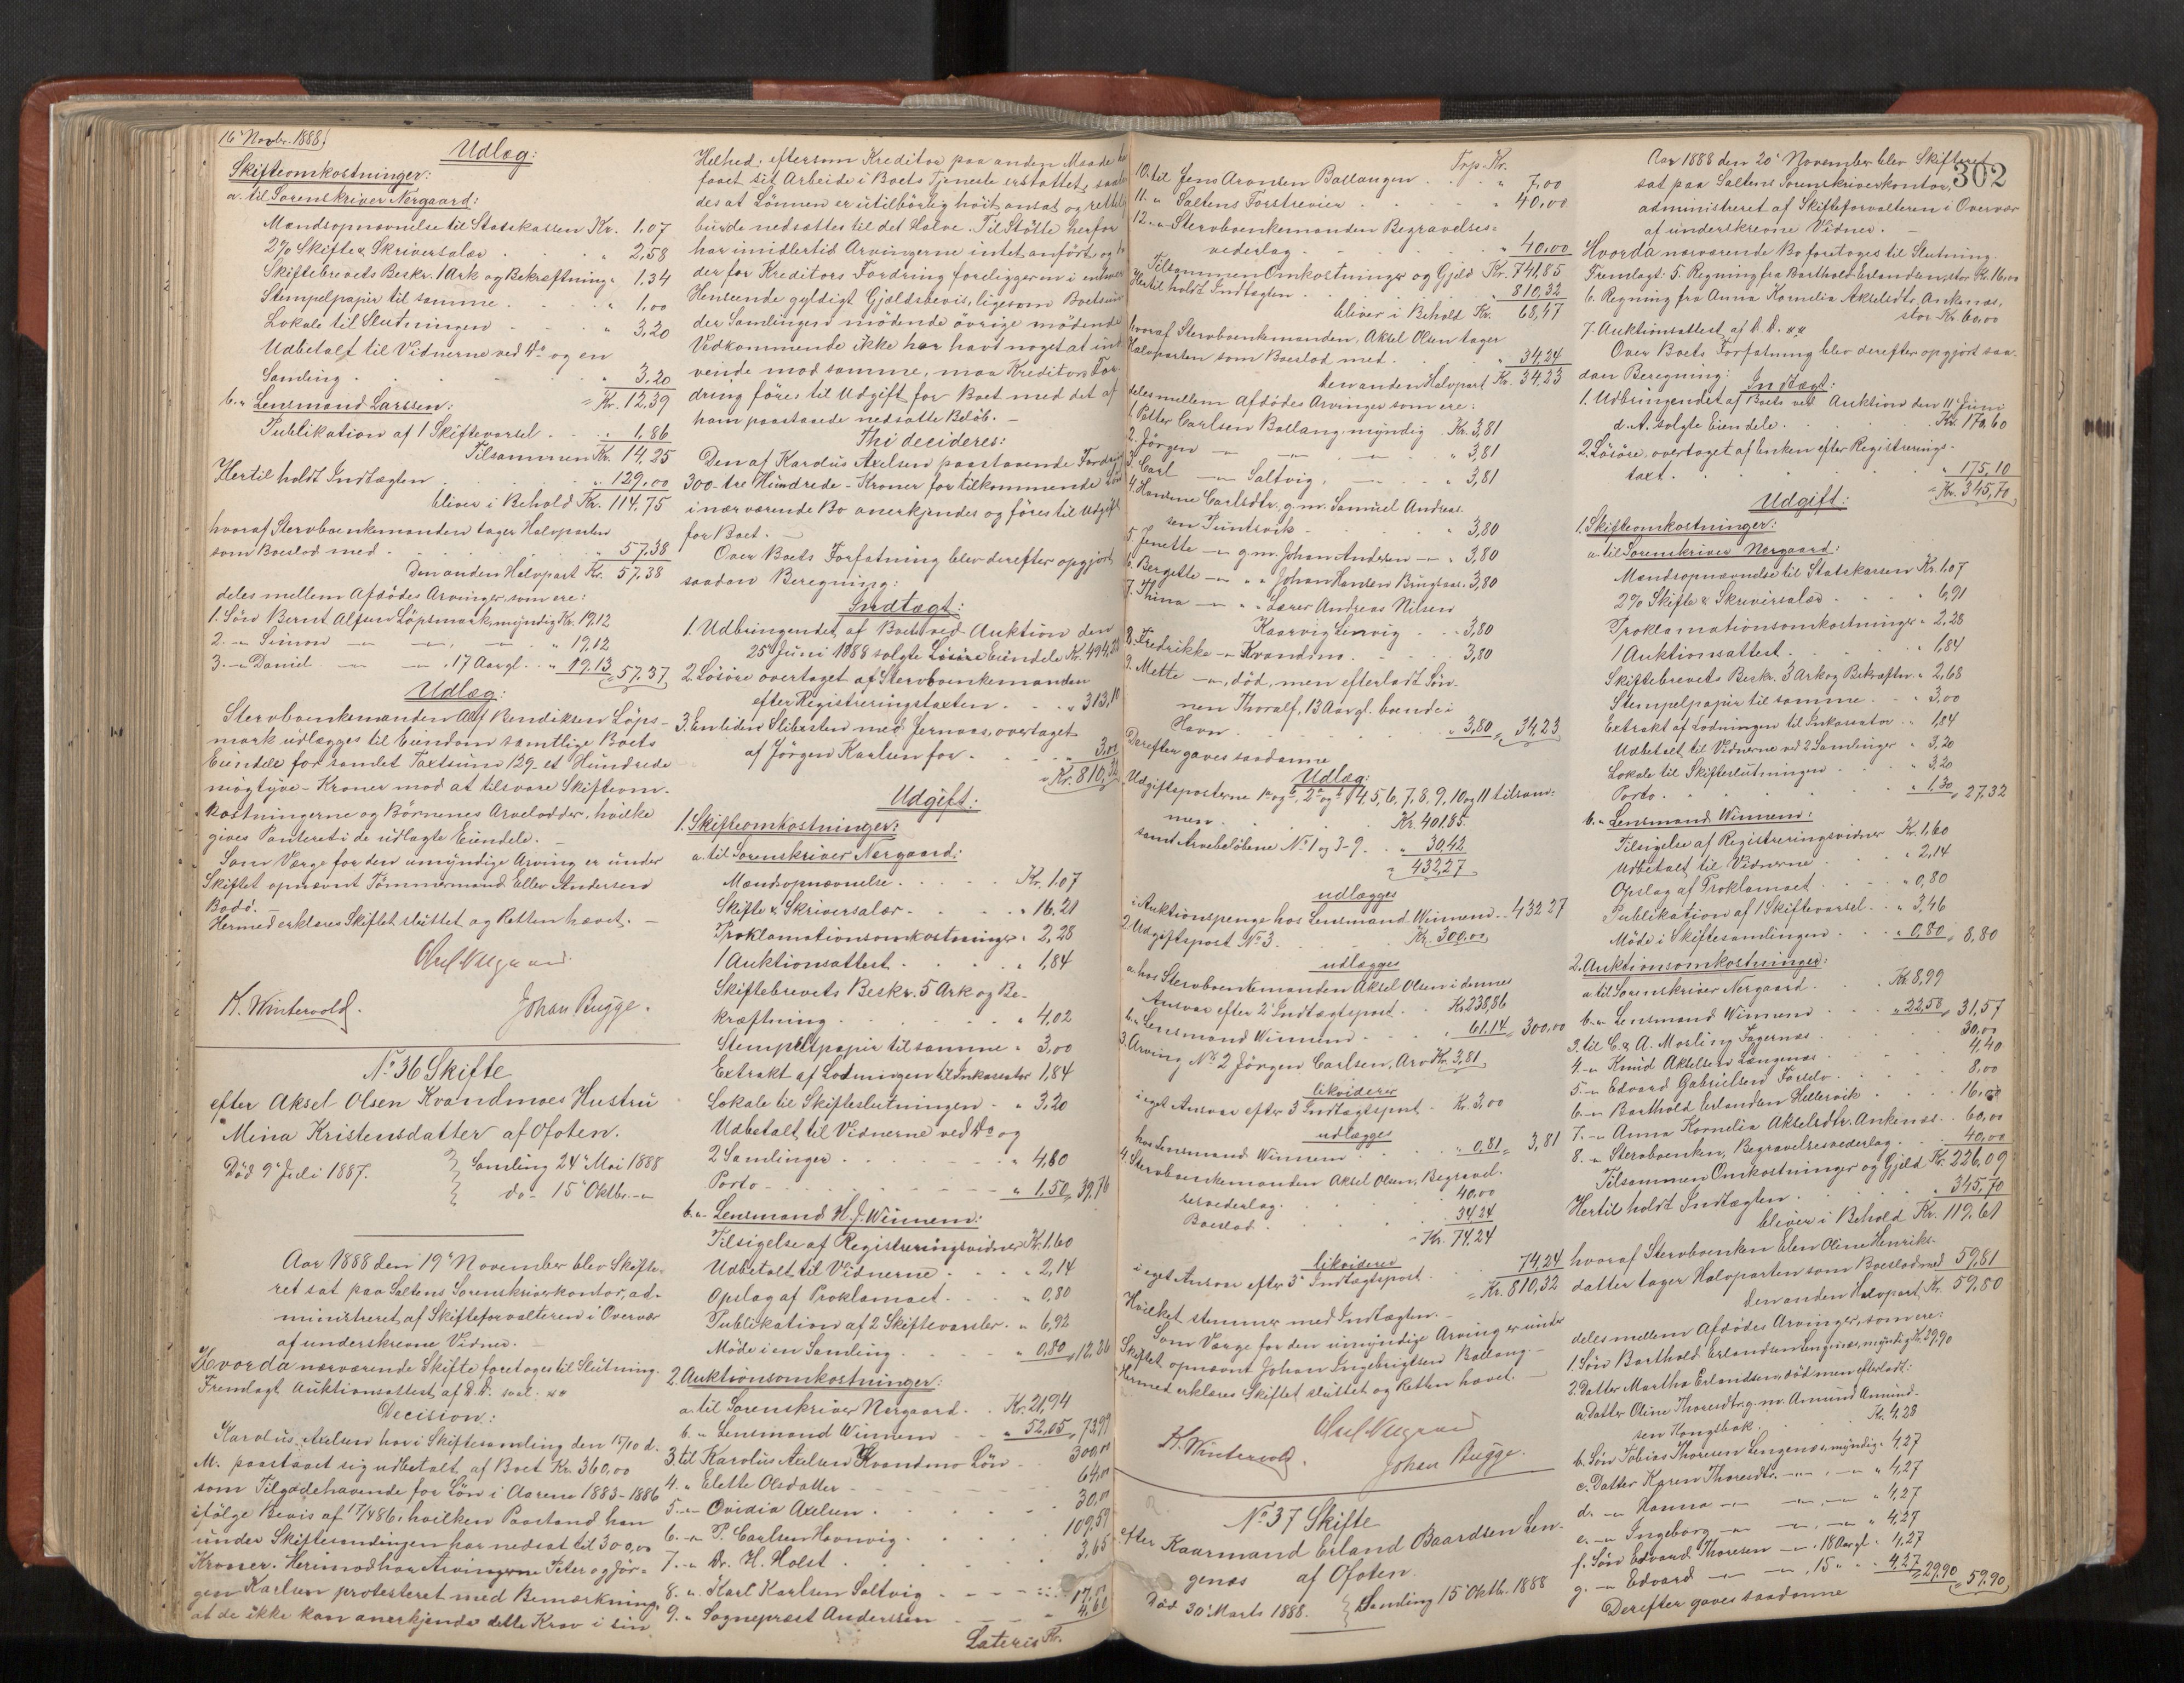 16' Novbr. 1888.
Udlæg:
Skifteomkostninger:
a. til Sorenskriver Nergaard:
Mandsopnævnelse til Statskassen Kr. 1,07
2% Skifte & Skriversalær . . " 2,58
Skiftebrevets Beskr. 1 Ark og Bekræftning " 1,34
Stempelpapir til samme . . . " 1,00
Lokale til Slutningen - - " 3,20
Udbetalt til Vidnerne ved Do og en
Samling . . . " 3,20
= Kr. 12,39
b. " Lensmand Larssen:
Publikation af 1 Skiftevarsel . . " 1,86
Tilsammen Kr. 14,25
Hertil holdt Indtægten . . . " 129,00
bliver i Behold Kr. 114,75
hvoraf Stervboenkemanden tager Halvparten
som Boeslod med . . . " 57,38
Den anden Halvpart Kr. 57,38
deles mellem Afdødes Arvinger, som ere:
1. Søn Bernt Alfsen Löpsmark, myndig Kr. 19,12
2. " Simon — — — " 19,12
3. " Daniel — — 17 Aar gl. " 19,13 = 57,37
Udlæg:
Stervboenkemanden Alf Bendiksen Löps-
mark udlægges til Eiendom samtlige Boets
Eiendele for samlet Taxtsum 129 - et Hundrede
niogtyve - Kroner mod at tilsvare Skifteom-
kostningerne og Børnenes Arvelodder, hvilke
gives Panteret i de udlagte Eiendele. —
Som Værge for den umyndige Arving er under
Skiftet opnævnt Tömmermand Ellev Andersen
Bodö.
Hermed erklæres Skiftet sluttet og Retten hævet. —
K. Wintervold.
Johan Bugge.
No 36 Skifte
efter Aksel Olsen Kvandmoes Hustru
Mina Kristensdatter af Ofoten.
Död 9' Juli 1887.
Samling 24' Mai 1888
do - 15' Oktbr. —
Aar 1888 den 19' November blev Skifte-
ret sat paa Saltens Sorenskriverkontor, ad-
ministreret af Skifteforvalteren i Overvær
af underskrevne Vidner. —
Hvorda nærværende Skifte foretoges til Slutning.
Fremlagt Auktionsattest af D.D.
Decision:
Karolus Axelsen har i Skiftesamling den 15/10 d.
M. paastaaet sig udbetalt af Boet Kr. 360,00
som Tilgodehavende for Løn i Aarene 1883-1886
ifølge Bevis af 17/4 86, hvilken Paastand han
under Skiftesamlingen har nedsat til 300,00
Kroner. Herimod har Arvingerne Peter og Jör-
gen Karlsen protesteret med Bemærkning,
at de ikke kan anerkjende dette Krav i sin
Helhed; eftersom Kreditor paa anden Maade
faaet sit Arbeide i Boets Tjeneste erstattet,
des at Lönnen er utilbörlig høit ansat og
burde nedsættes til det Halve. Til Stötte herfor
har imidlertid Arvingerne intet anført og
der for Kreditors Fordring foreligger en i
Henseende gyldigt Gjældsbevis, ligesom
der Samlingen mødende øvrige mødende
Vedkommende ikke har havt noget at
vende mod samme, maa Kreditors For-
dring føres til Udgift for Boet med det af
ham paastaaede nedsatte Beløb. —
Thi decideres:
Den af Karolus Axelsen paastaaende Fordring
300 - tre Hundrede - Kroner for tilkommende Løn
i nærværende Bo anerkjendes og føres til Udgift
for Boet. —
Over Boets Forfatning blev derefter opgjort
saadan Beregning:
Indtægt:
1. Udbringendet af Boets ved Auktion den
25' Juni 1888 solgte Eiendele Kr. 494,22
2. Lösöre overtaget af Stervboenkemanden
efter Registreringstaxten . . . " 313,10
3. En liden Slibesten med Jernaas, overtaget
af Jörgen Karlsen for . . . " 3,00
= Kr. 810,32
Udgift:
1. Skifteomkostninger:
a. til Sorenskriver Nergaard:
Mandsopnævnelse . . . Kr. 1,07
Skifte & Skriversalær . . . " 16,21
Proklamationsomkostninger . " 2,28
1 Auktionsattest . . . " 1,84
Skiftebrevets Beskr. 5 Ark og Be-
kræftning . . . " 4,02
Stempelpapir til samme " 3,00
Extrakt af Lodningen til Inkassator 1,84
Lokale til Skifteslutningen - " 3,20
Udbetalt til Vidnerne ved Do og
2 Samlinger . . . " 4,80
Porto - - - " 1,50 = 39,76
b. " Lensmand H. J. Winnem:
Tilsigelse af Registreringsvidner Kr. 1,60
Udbetalt til Vidnerne . . . " 2,14
Opslag af Proklamaet . . . " 0,80
Publikation af 2 Skiftevarsler . " 6,92
Møde i en Samling . . . " 0,80 = 12,26
2. Auktionsomkostninger:
a. til Sorenskriver Nergaard . Kr. 21,94
b. " Lensmand Winnem - - " 52,05 = 73,99
3. til Karolus Axelsen Kvandmo Løn - 300,00
4. " Elette Olsdatter - - - 64,00
5. " Ovidia Axelsen . . . 30,00
6. " P. Carlsen Havnvig . . . 109,59
7. " Dr. H. Holst . . . 3,65
8. " Karl Karlsen Saltvig - - - 17,00
9. " Sognepræst Anderssen - - - 4,60
Lateris Kr.
302
Trp. Kr.
10. til Jens Aronsen Ballangen . . . " 7,00
11. " Saltens Forstrevier . . . " 40,00
12. " Stervboenkemanden Begravelses-
vederlag . . . " 40,00
Tilsammen Omkostninger og Gjeld Kr. 741,85
Hertil holdt Indtægten . . . " 810,32
bliver i Behold Kr. 68,47
hvoraf Stervboenkemanden, Aksel Olsen tager
Halvparten som Boeslod med . . . " 34,24
den anden Halvpart Kr. 34,23
deles mellem Afdödes Arvinger som ere:
1. Peter Carlsen Ballang, myndig . Kr. 3,81
2. Jörgen — — — . " 3,81
3. Carl — Saltvig, — . " 3,81
4. Hansine Carlsdtr. g. m. Samuel Andreas-
sen Puntsvik . . . " 3,80
5. Jenette — g. m. Johan Andersen — " 3,80
6. Bergette — " " Johan Hansen . 3,80
7. Thina — " " Lærer Andreas Nilsen
Kaarvig Lenvig . . " 3,80
8. Fredrikke — Kvandmo . . . 3,80
9. Mette — , död, men efterladt Søn-
nen Thoralf, 13 Aar gl. boende i
Havn . . . " 3,80 = 34,23
Derefter gaves saadanne
Udlæg:
Udgiftsposterne 1 a og b, 2 a og b, 4, 5, 6, 7, 8, 9, 10 og 11 tilsam-
men . . . Kr. 401,85.
samt Arvebeløbene No 1 og 3-9 . . " 30,42
" 432,27
udlægges
i Auktionspenge hos Lensmand Winnem . . 432 27
2. Udgiftspost No 3 . . . Kr. 300,00
udlægges
a. hos Stervboenkemanden Aksel Olsen i dennes
Ansvar efter 2' Indtægtspost . . Kr. 238,86
b. " Lensmand Winnem . . . " 61,14 = 300,00
3. Arving No 2 Jörgen Carlsen, Arv Kr. 3,81
likviderer
i eget Ansvar efter 3 Indtægtspost . . Kr. 3,00
udlægges
hos Lensmand Winnem . . " 0,81 = 3,81
4. Stervboenkemanden Aksel Olsen, Begravel-
sesvederlag . . . 40,00
Boeslod . . . 34,24
= Kr. 74,24
likviderer
i eget Ansvar efter 3' Indtægtspost . . 74,24
= Kr. 810,32
Hvilket stemmer med Indtægten. —
Som Værge for den umyndige Arving er under
Skiftet opnævnt Johan Ingebrigtsen Ballang. —
Hermed erklæres Skiftet sluttet og Retten hævet. —
K. Wintervold.
Johan Bugge.
No 37 Skifte
efter Kaarmand Erland Baardsen Len-
genæs af Ofoten.
Död 30' Marts 1888.
Samling 15' Oktb. 1888
Aar 1888 den 20' November blev Skifteret
sat paa Saltens Sorenskriverkontor,
administreret af Skifteforvalteren i Overvær
af underskrevne Vidner. —
Hvorda nærværende Bo foretoges til Slutning.
Fremlagt: 5. Regning fra Barthold Erlandsen, stor Kr. 16,00
6. Regning fra Anna Kornelia Akselsdtr. Ankenæs,
stor Kr. 60,00
7. Auktionsattest af D.D.
Over Boets Forfatning blev derefter opgjort saa-
dan Beregning:
Indtægt:
1. Udbringendet af Boets ved Auktion den 11' Juni
d. A. solgte Eiendele . . . Kr. 170,60
2. Lösöre overtaget af Enken efter Registrerings-
taxt . . . " 175,10
= Kr. 345,70
Udgift:
1. Skifteomkostninger:
a. til Sorenskriver Nergaard:
Mandsopnævnelse til Statskassen Kr. 1,07
2% Skifte & Skriversalær . . " 6,91
Proklamationsomkostninger " 2,28
1 Auktionsattest . . . " 1,84
Skiftebrevets Beskr. 3 Ark og Bekræftn. " 2,68
Stempelpapir til samme . . " 3,00
Extrakt af Lodningen til Inkassator . . 1,84
Udbetalt til Vidnerne ved 2 Samlinger " 3,20
Lokale til Skifteslutningen . . " 3,20
Porto . . . " 1,30 = 27,32
b. " Lensmand Winnem:
Tilsigelse af Registreringsvidner Kr. 1,60
Udbetalt til Vidnerne . . " 2,14
Opslag af Proklamaet . . " 0,80
Publikation af 1 Skiftevarsel . " 3,46
Møde i Skiftesamlingen . . " 0,80 = 8,80
2. Auktionsomkostninger:
a. til Sorenskriver Nergaard . . Kr. 8,99
b. " Lensmand Winnem . . " 22,58 = 31,57
3. til C. & A. Mosling Fagernæs . . 30,00
4. " Knud Akselsen Langnæs . . 4,40
5. " Edvard Gabrielsen Forselv . . 8,00
6. " Barthold Erlandsen Hellervik . . 16,00
7. " Anna Kornelia Akselsdtr. Ankenæs . . 60,00
8. " Stervboenken, Begravelsesvederlag . . 40,00
Tilsammen Omkostninger og Gjeld Kr. 226,09
Hertil holdt Indtægten . . . " 345,70
bliver i Behold Kr. 119,61
hvoraf Stervboenken Elen Oline Henriks-
datter tager Halvparten som Boeslod med 59,81
den anden Halvpart Kr. 59,80
deles mellem Afdødes Arvinger, som ere:
1. Søn Barthold Erlandsen Lengenæs, myndig Kr. 29,90
2. Datter Martha Erlandsen, död men efterladt:
a. Datter Oline Thoresdtr. g. m. Amund Amund-
sen Kongsbak . . Kr. 4,28
b. Søn Tobias Thoresen Lengenæs, myndig " 4,27
c. Datter Karen Thoresdtr. — — " 4,27
d. " Hanna — — — " 4,27
e. " Ingeborg — — — " 4,27
f. Søn Edvard Thoresen — 18 Aar gl. " 4,27
g. " Edvard — — 15 " " 4,27 = 29,90 = 59,90
Derefter gaves saadanne